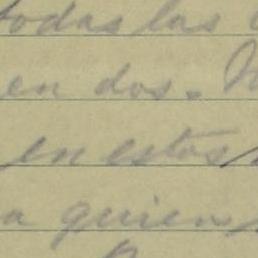 todas las
en dos.
en estos
a quien